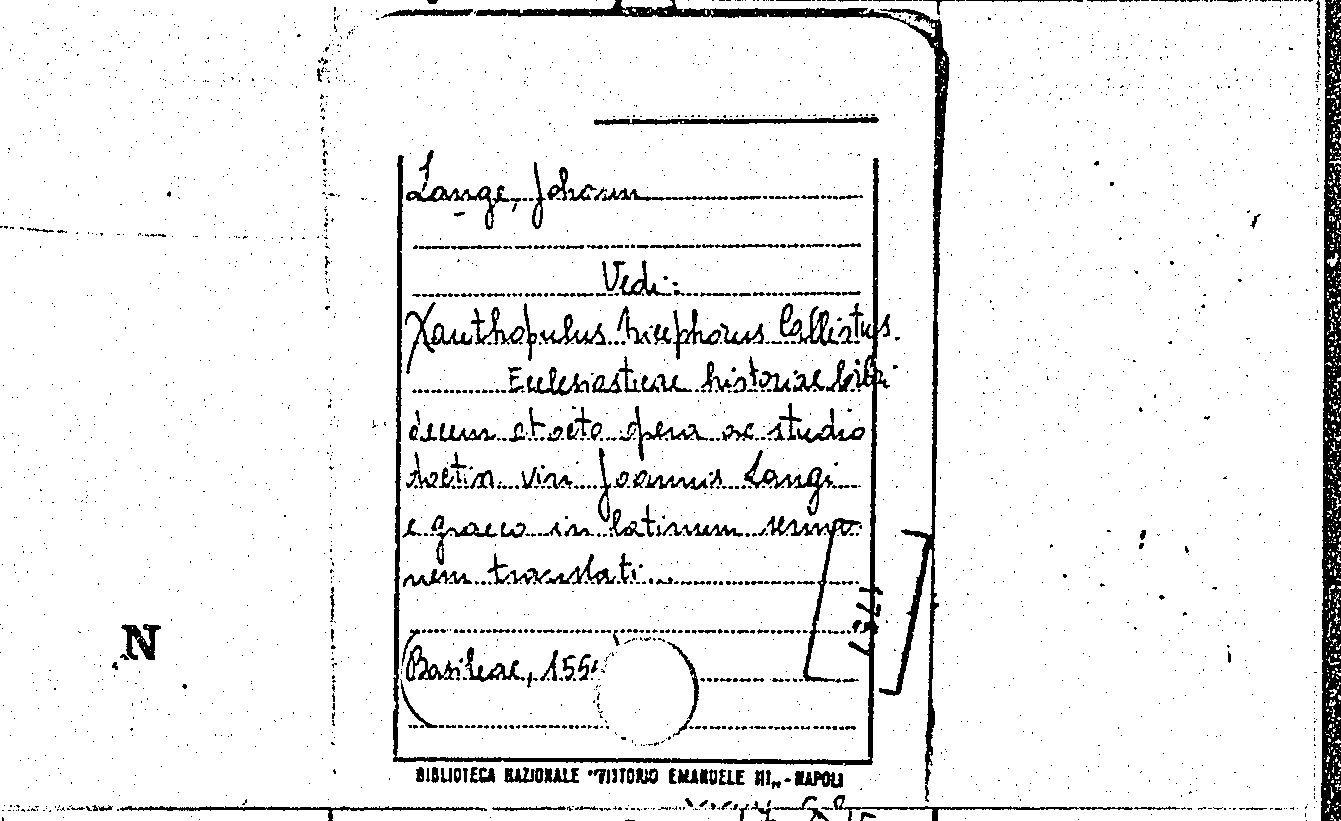 Lange, Johann
Vedi:
Xanthopulus Nicephorus Callistus.
Ecclesiasticae historiae libri
decem et octo opera ac studio
doctiss. viri Joannis Langi
e graeco in latinum sermo-
nem translati...
N
Basileae,
BIBLIOTECA NAZIONALE "VITTORIO EMANUELE III„ - NAPOLI